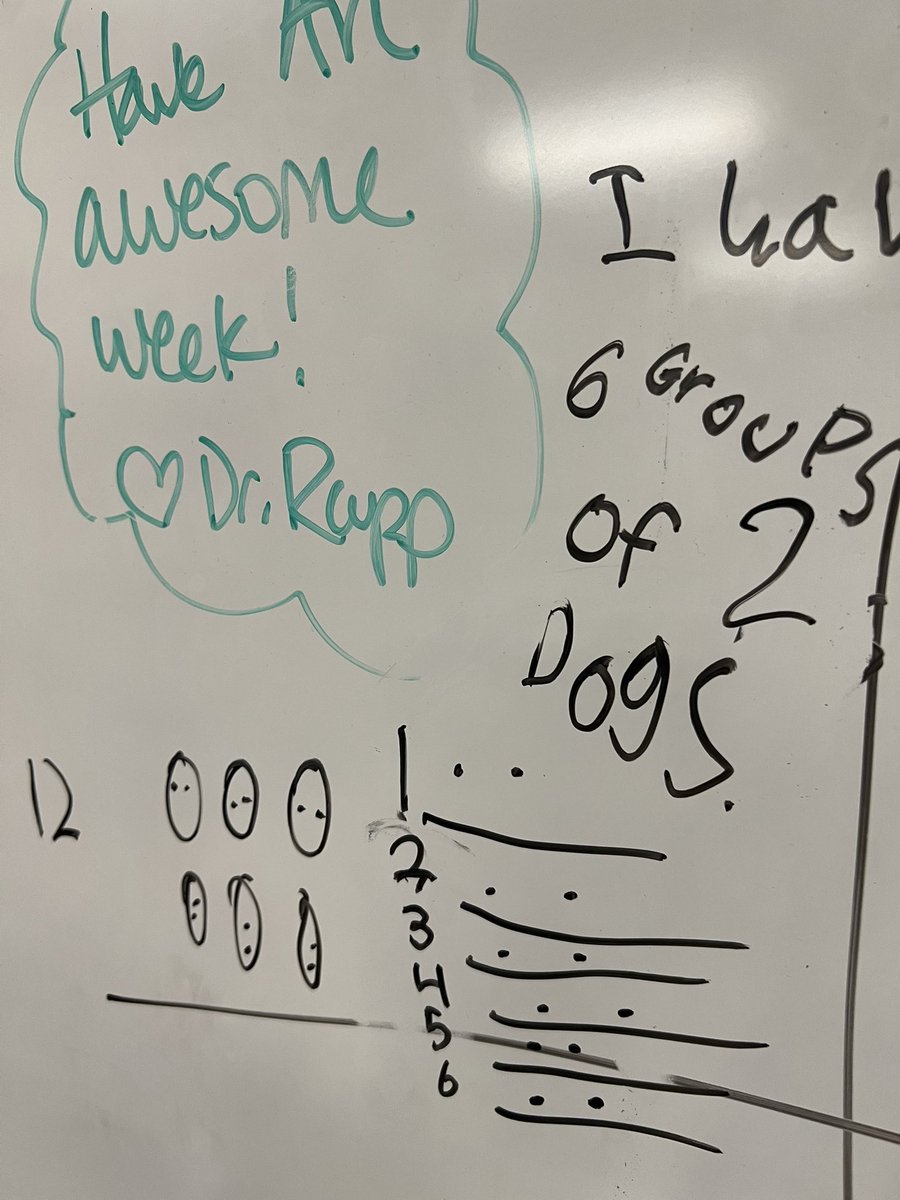 Have An
awesome
week!
♡ Dr. Rapp
I hav
6 Groups
of 2
Dogs.
12
1
2
3
4
5
6